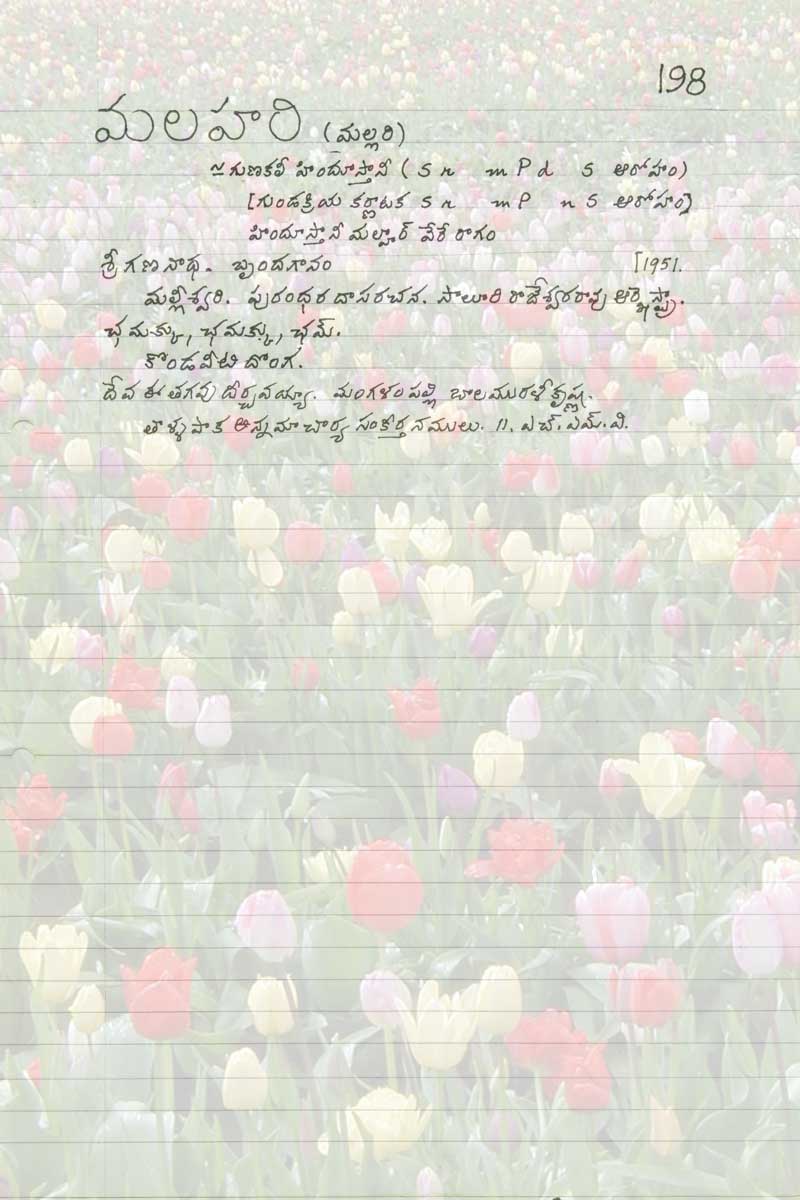 198
మలహరి (మల్లరి)
≃ గుణకలీ హిందూస్తానీ ( S r m P d S ఆరోహం)
[గుండక్రియ కర్ణాటక S r m P n S ఆరోహం]
హిందూస్తానీ మల్హార్ వేరే రాగం
శ్రీ గణనాథ. బృందగానం [1951.
మల్లీశ్వరి. పురంధర దాస రచన. సాలూరి రాజేశ్వరరావు ఆర్కెస్ట్రా.
ఛమక్కు, ఛమక్కు, ఛమ్.
కొండవీటి దొంగ.
దేవ ఈ తగవు దీర్చవయ్యా. మంగళంపల్లి బాలమురళీకృష్ణ.
తాళ్ళపాక అన్నమాచార్య సంకీర్తనములు. 11. ఎచ్. ఎమ్. వి.